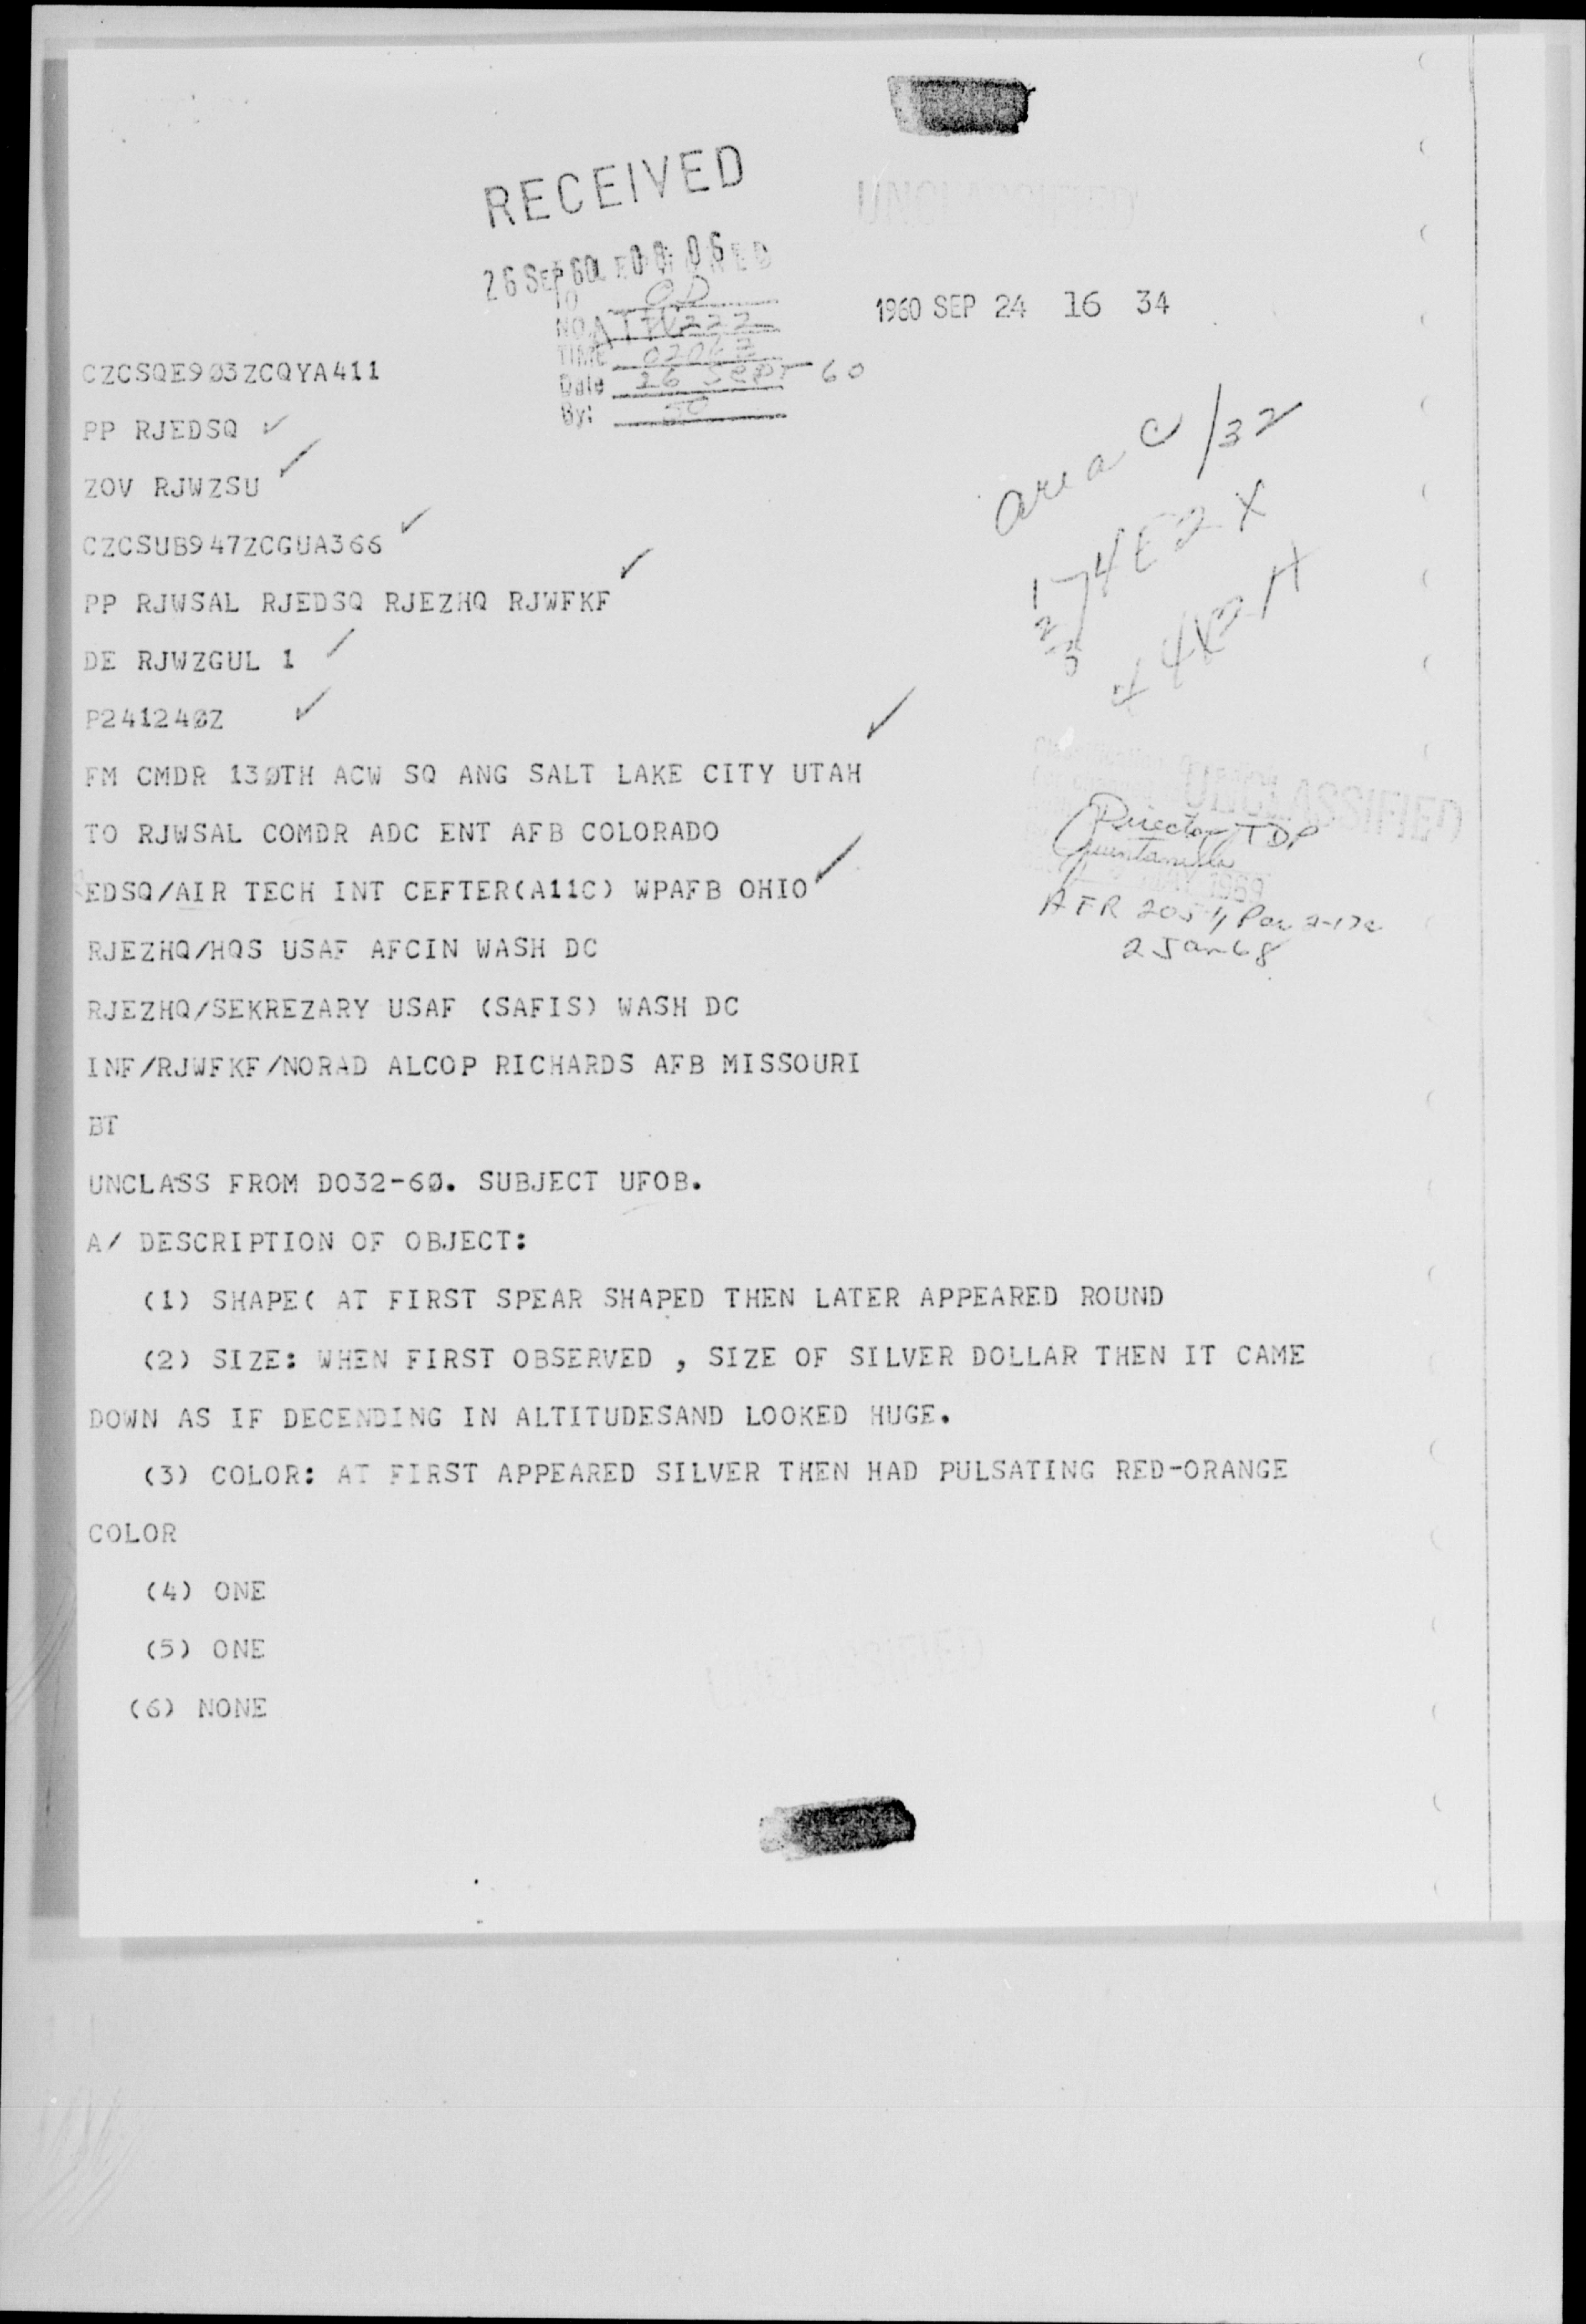 RECEIVED
26 SEP 60 08 06
TO OD
NO.
TIME
Date 26 Sept 60
By:
1960 SEP 24 16 34
CZCSQE9Ø3ZCQYA411
PP RJEDSQ
ZOV RJWZSU
CZCSUB947ZCGUA366
PP RJWSAL RJEDSQ RJEZHQ RJWFKF
DE RJWZGUL 1
P24124ØZ
FM CMDR 13ØTH ACW SQ ANG SALT LAKE CITY UTAH
TO RJWSAL COMDR ADC ENT AFB COLORADO
EDSQ/AIR TECH INT CEFTER(A11C) WPAFB OHIO
RJEZHQ/HQS USAF AFCIN WASH DC
RJEZHQ/SEKREZARY USAF (SAFIS) WASH DC
INF/RJWFKF/NORAD ALCOP RICHARDS AFB MISSOURI
area C /32
74E2X
4X2A
UNCLASSIFIED
Director TDP
Quintanilla
AFR 205-1, Par 2-17c
2 Jan 68
BT
UNCLASS FROM DO32-6Ø. SUBJECT UFOB.
A/ DESCRIPTION OF OBJECT:
(1) SHAPE( AT FIRST SPEAR SHAPED THEN LATER APPEARED ROUND
(2) SIZE: WHEN FIRST OBSERVED , SIZE OF SILVER DOLLAR THEN IT CAME
DOWN AS IF DECENDING IN ALTITUDESAND LOOKED HUGE.
(3) COLOR: AT FIRST APPEARED SILVER THEN HAD PULSATING RED-ORANGE
COLOR
(4) ONE
(5) ONE
(6) NONE